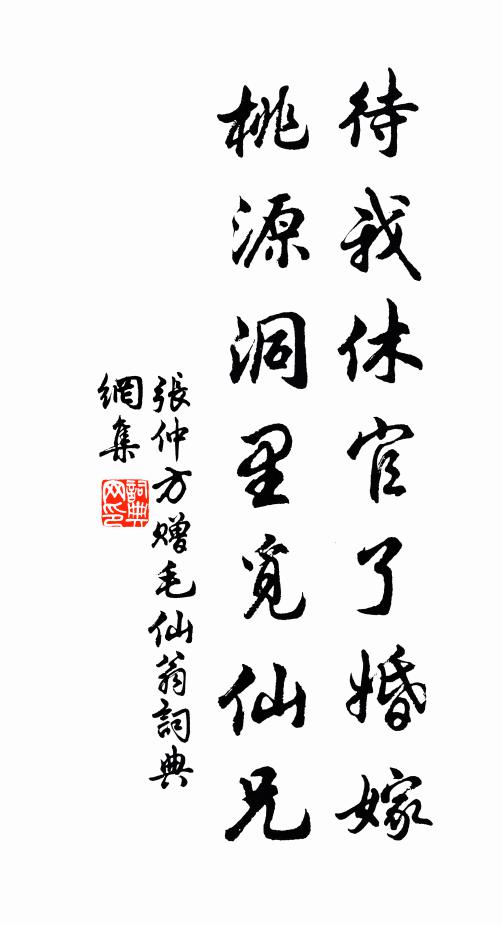 待我休官了婚嫁
桃源洞里覓仙兄
張仲方贈毛仙翁詞典
網集
詞典
网印